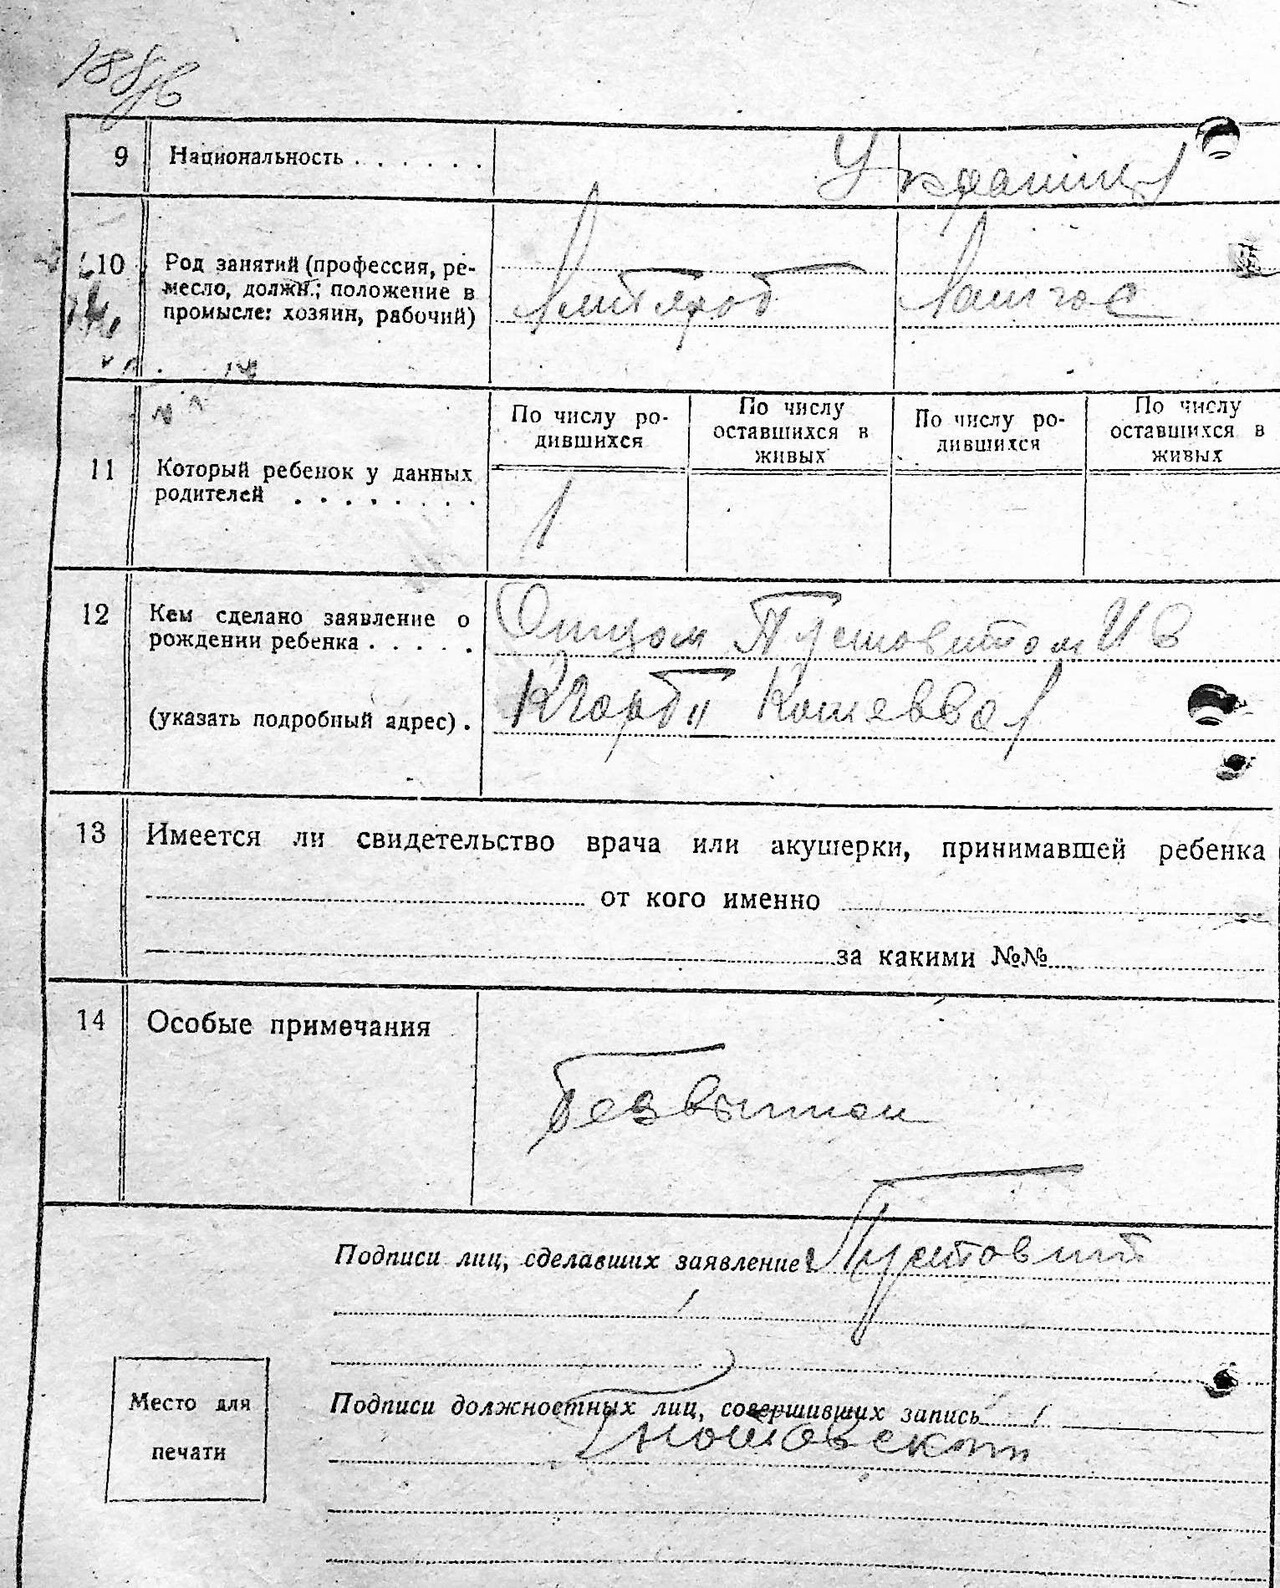 188/в
9 Национальность . . . . . . Украинцы
10 Род занятий (профессия, ре-
месло, должн.; положение в
промысле: хозяин, рабочий)
11 Который ребенок у данных
родителей . . . . . . . .
По числу ро-
дившихся
По числу
оставшихся в
живых
По числу ро-
дившихся
По числу
оставшихся в
живых
1
12 Кем сделано заявление о
рождении ребенка . . . . .
Отцом Пустовитом И В
(указать подробный адрес) .
13 Имеется ли свидетельство врача или акушерки, принимавшей ребенка
от кого именно
за какими №№
14 Особые примечания
Подписи лиц, сделавших заявление Пустовит
Место для
печати
Подписи должностных лиц, совершивших запись